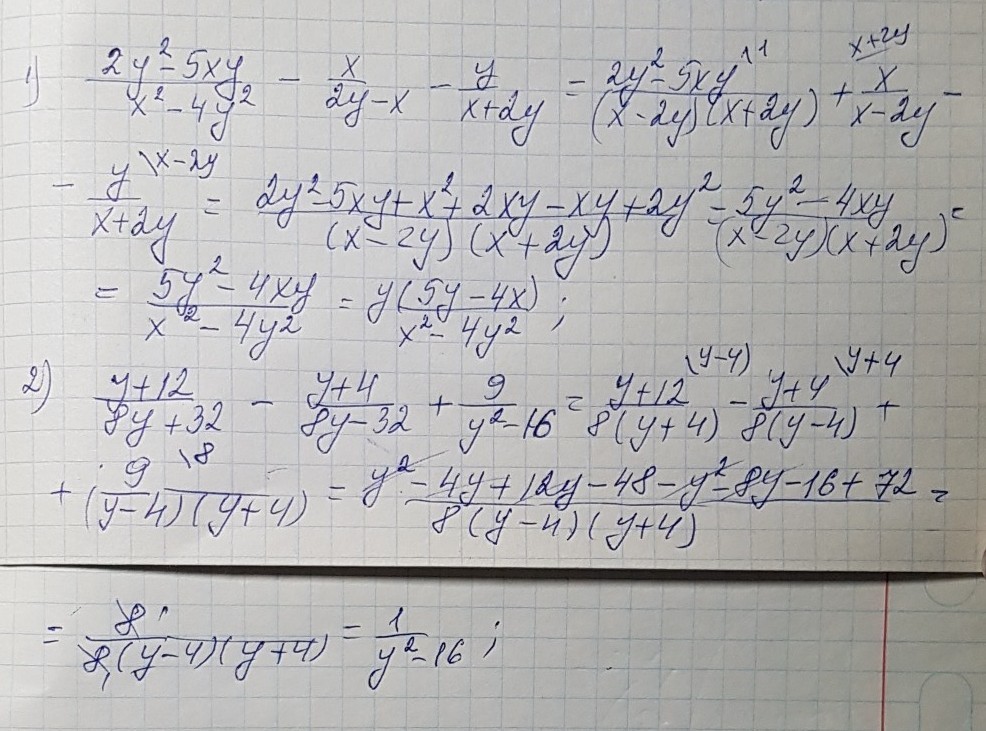 1) (2y²-5xy)/(x²-4y²) - x/(2y-x) - y/(x+2y) = (2y²-5xy)/((x-2y)(x+2y)) \1 + x/(x-2y) \x+2y -
- y/(x+2y) \x-2y = (2y²-5xy+x²+2xy-xy+2y²)/((x-2y)(x+2y)) = (5y²-4xy)/((x-2y)(x+2y)) =
= (5y²-4xy)/(x²-4y²) = y(5y-4x)/(x²-4y²) ;
2) (y+12)/(8y+32) - (y+4)/(8y-32) + 9/(y²-16) = (y+12)/(8(y+4)) \(y-4) - (y+4)/(8(y-4)) \y+4 +
+ 9/((y-4)(y+4)) \8 = (y²-4y+12y-48-y²-8y-16+72)/(8(y-4)(y+4)) =
= 8/(8(y-4)(y+4)) = 1/(y²-16) ;